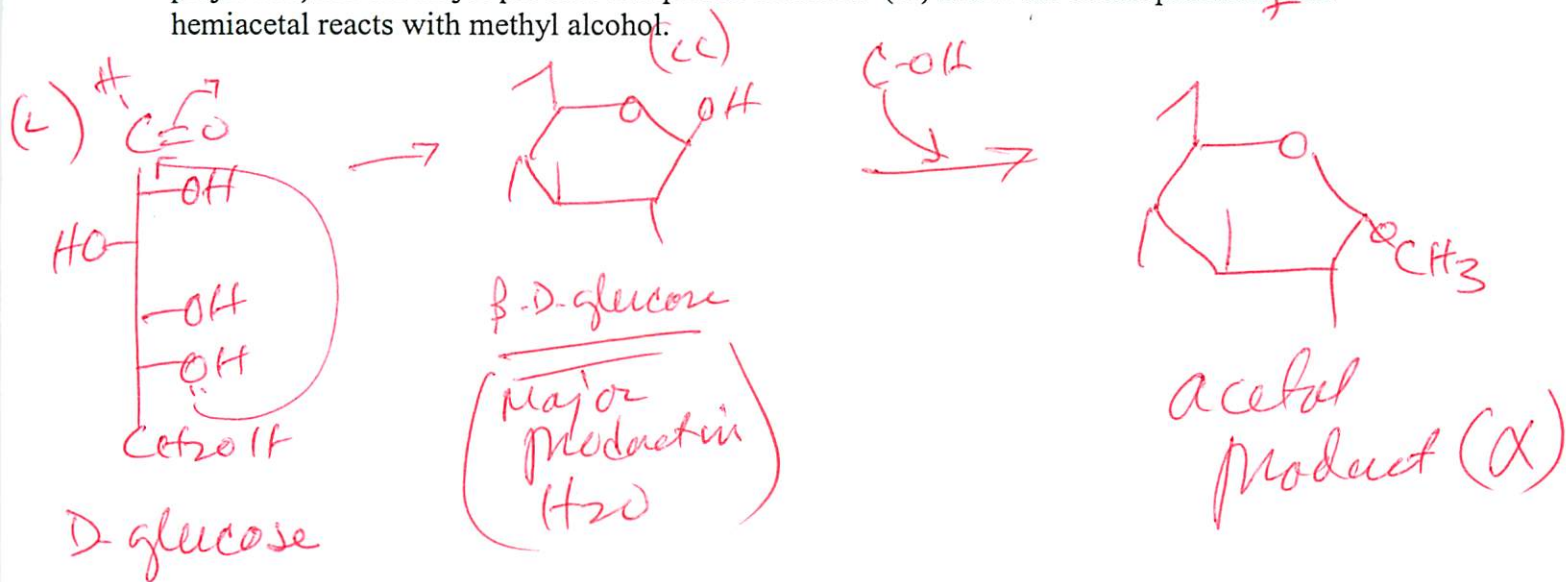 hemiacetal reacts with methyl alcohol.
(i)
H
C=O
OH
HO
OH
OH
CH2OH
D-glucose
(ii)
O
OH
β-D-glucose
(Major
product in
H2O)
C-OH
O
OCH3
acetal
product (α)